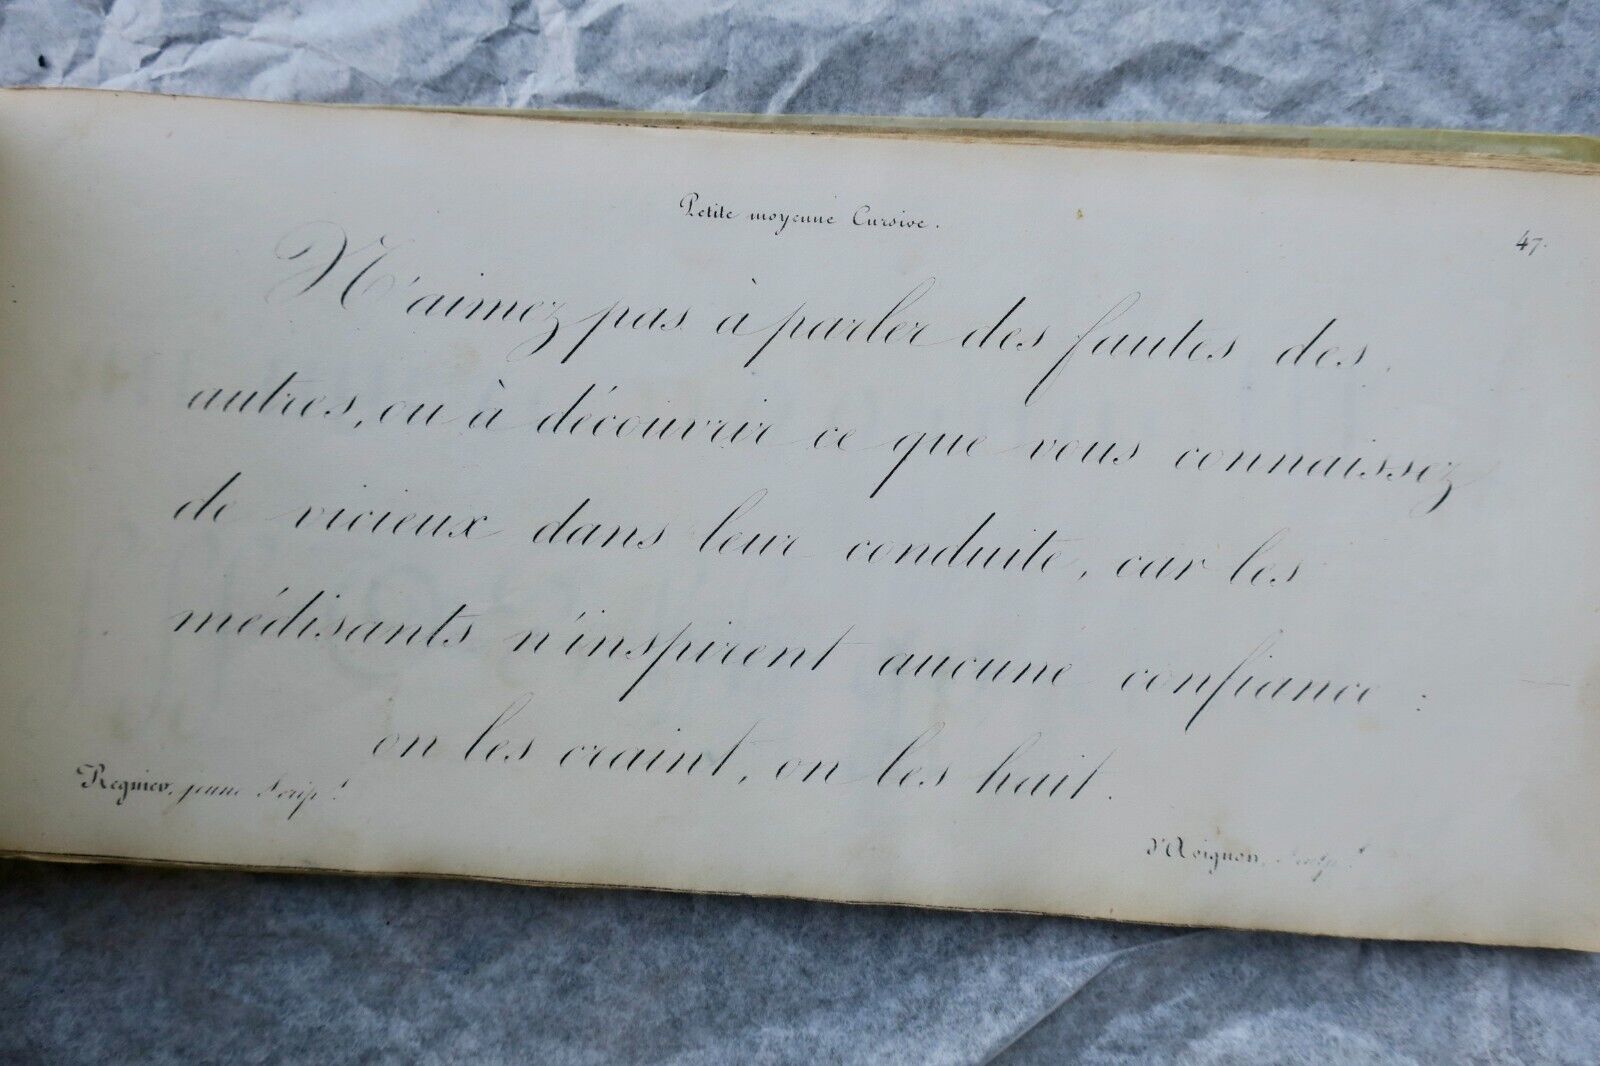 Petite moyenne Cursive.
47.
N'aimez pas à parler des fautes des
autres, ou à découvrir ce que vous connaissez
de vicieux dans leur conduite, car les
médisants n'inspirent aucune confiance :
on les craint, on les hait.
Regnier, jeune Scrip.t
d'Avignon, Sculp.t